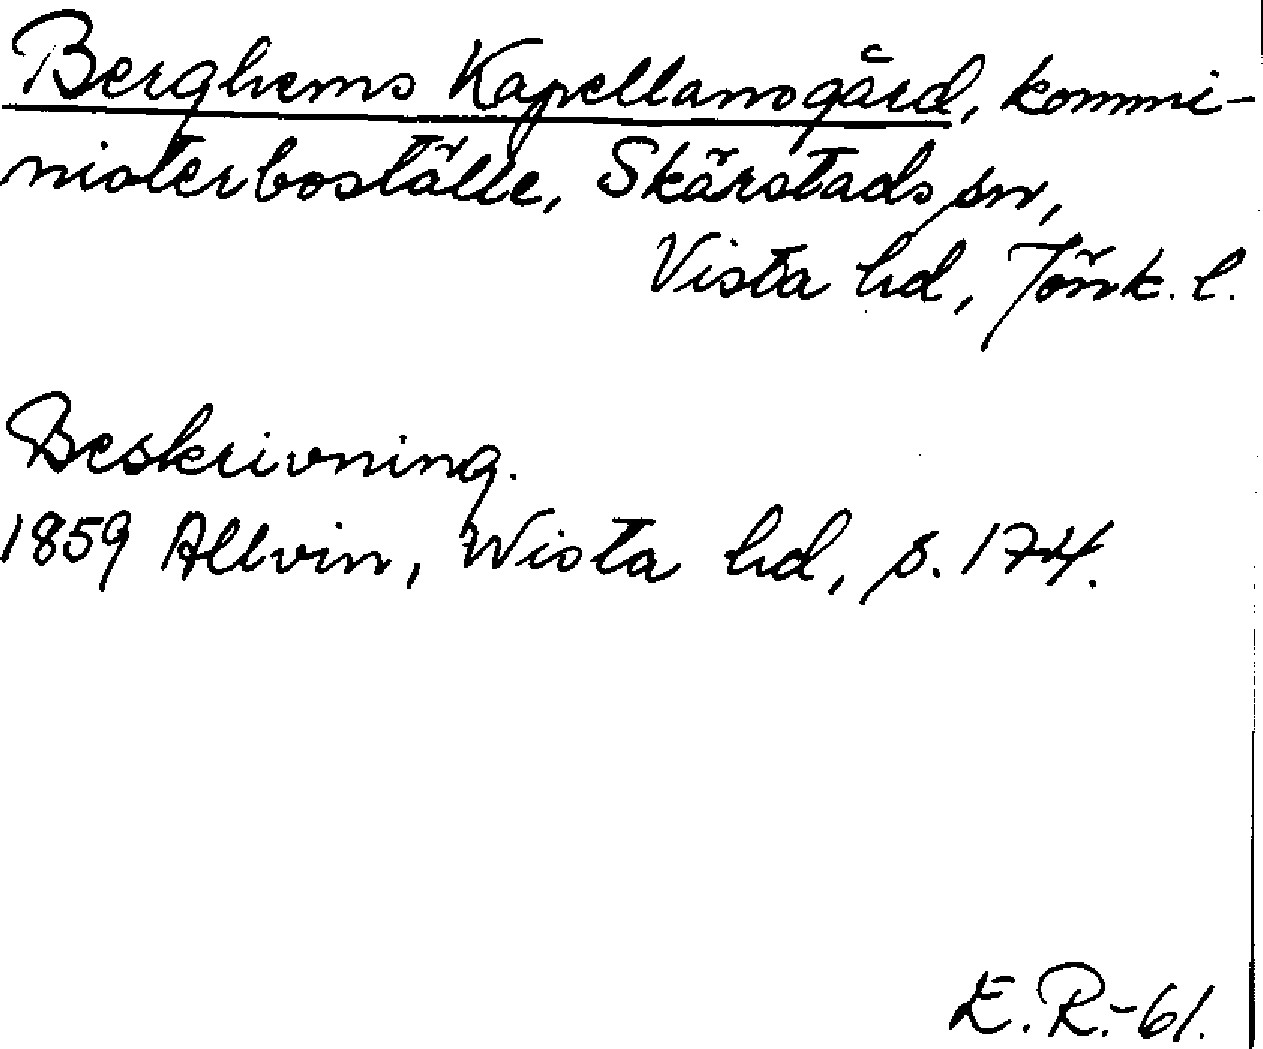 Berghems Kapellansgård, kommi-
nisterboställe, Skärstads sn,
Vista hd, Jönk. l.
Beskrivning.
1859 Allvin, Wista hd, s. 174.
E.R.-61.